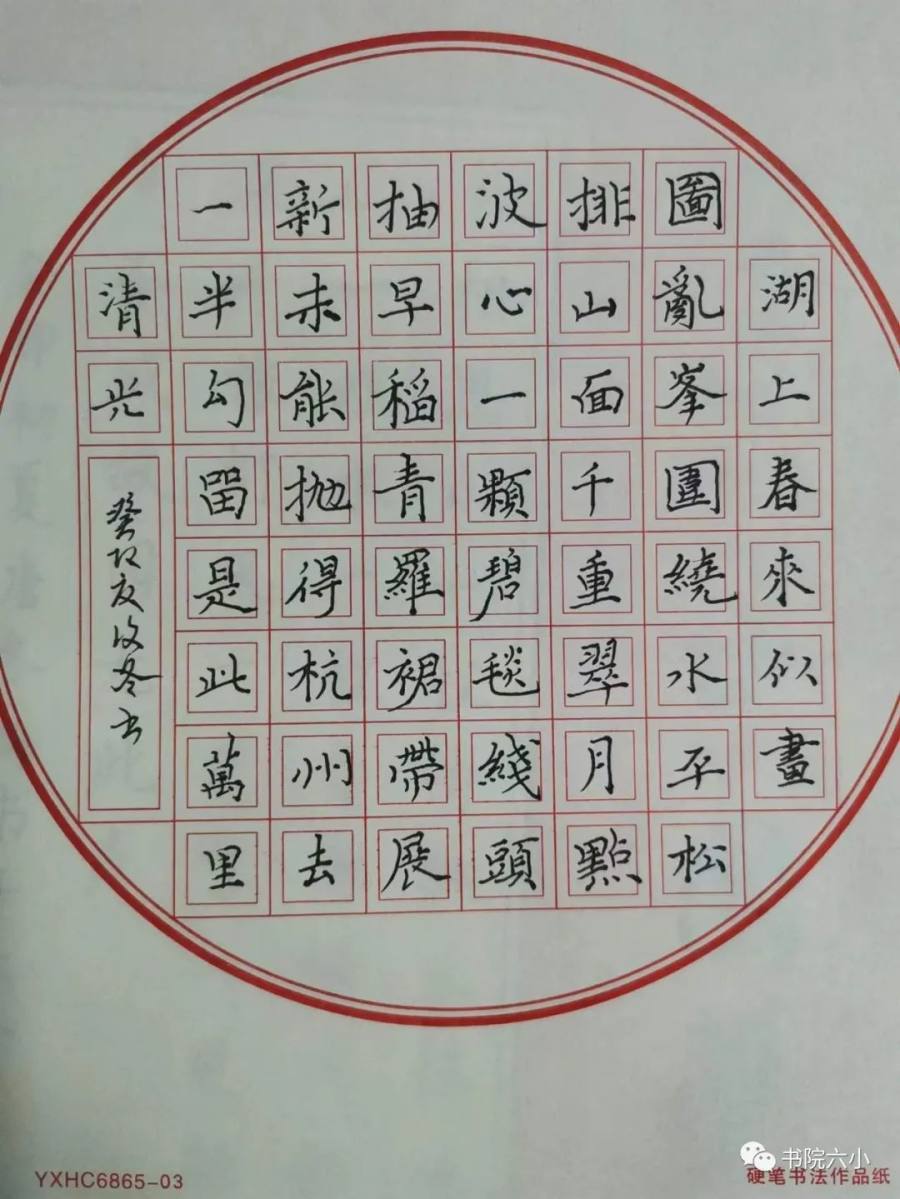 湖上春來似畫
圖亂峯圍繞水平松
排山面千重翠月點
波心一顆碧毯綫頭
抽早稻青羅裙帶展
新未能抛得杭州去
一半勾留是此萬里
清光
癸卯冬书
YXHC6865-03
硬笔书法作品纸
书院六小